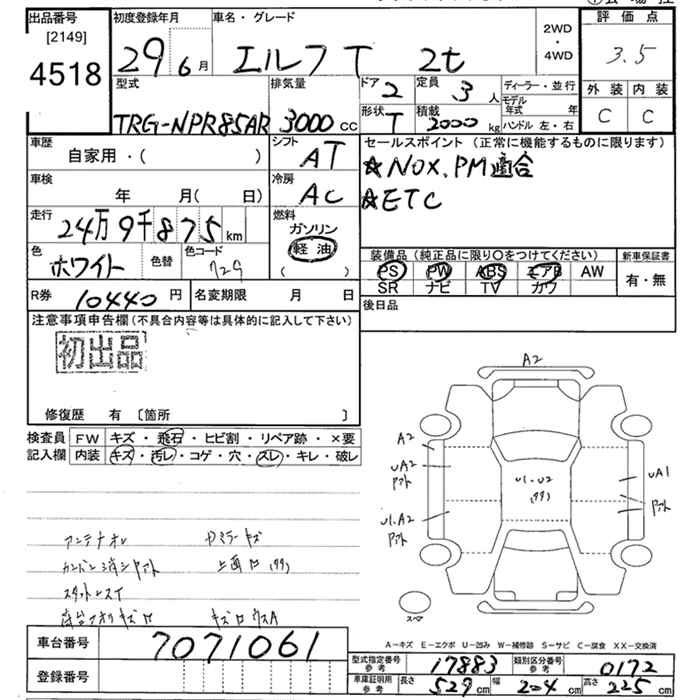 出品番号
[2149]
4518
初度登録年月
29 6月
車名・グレード
エルフT 2t
2WD
・
4WD
評価点
3.5
外装 内装
C C
型式
TRG-NPR85AR
排気量
3000cc
ドア 2
形状 T
定員 3人
積載 2000kg
ディーラー・並行
モデル年式 年
ハンドル 左・右
車歴
自家用・( )
車検
年 月( 日)
走行
24万9千875km
色
ホワイト
色替
色コード
729
シフト
AT
冷房
AC
燃料
ガソリン
軽油
( )
セールスポイント (正常に機能するものに限ります)
☆NOX.PM適合
☆ETC
装備品 (純正品に限り〇をつけてください)
PS PW ABS エアB AW
SR ナビ TV カワ
新車保証書
有・無
R券 10440円
名変期限 月 日
後日品
注意事項申告欄(不具合内容等は具体的に記入して下さい)
初出品
修復歴 有 〔箇所 〕
検査員記入欄
FW キズ・飛石・ヒビ割・リペア跡・×要
内装 キズ・汚レ・コゲ・穴・スレ・キレ・破レ
A2
A2
UA2
U1.A2
U1-U2
UA1
アンテナオレ
スペア
車台番号
7071061
登録番号
A-キズ E-エクボ U-凹み W-補修跡 S-サビ C-腐食 XX-交換済
型式指定番号 参考 17883
類別区分番号 参考 0172
車庫証明用 参考
長さ 529cm 幅 204cm 高さ 225cm